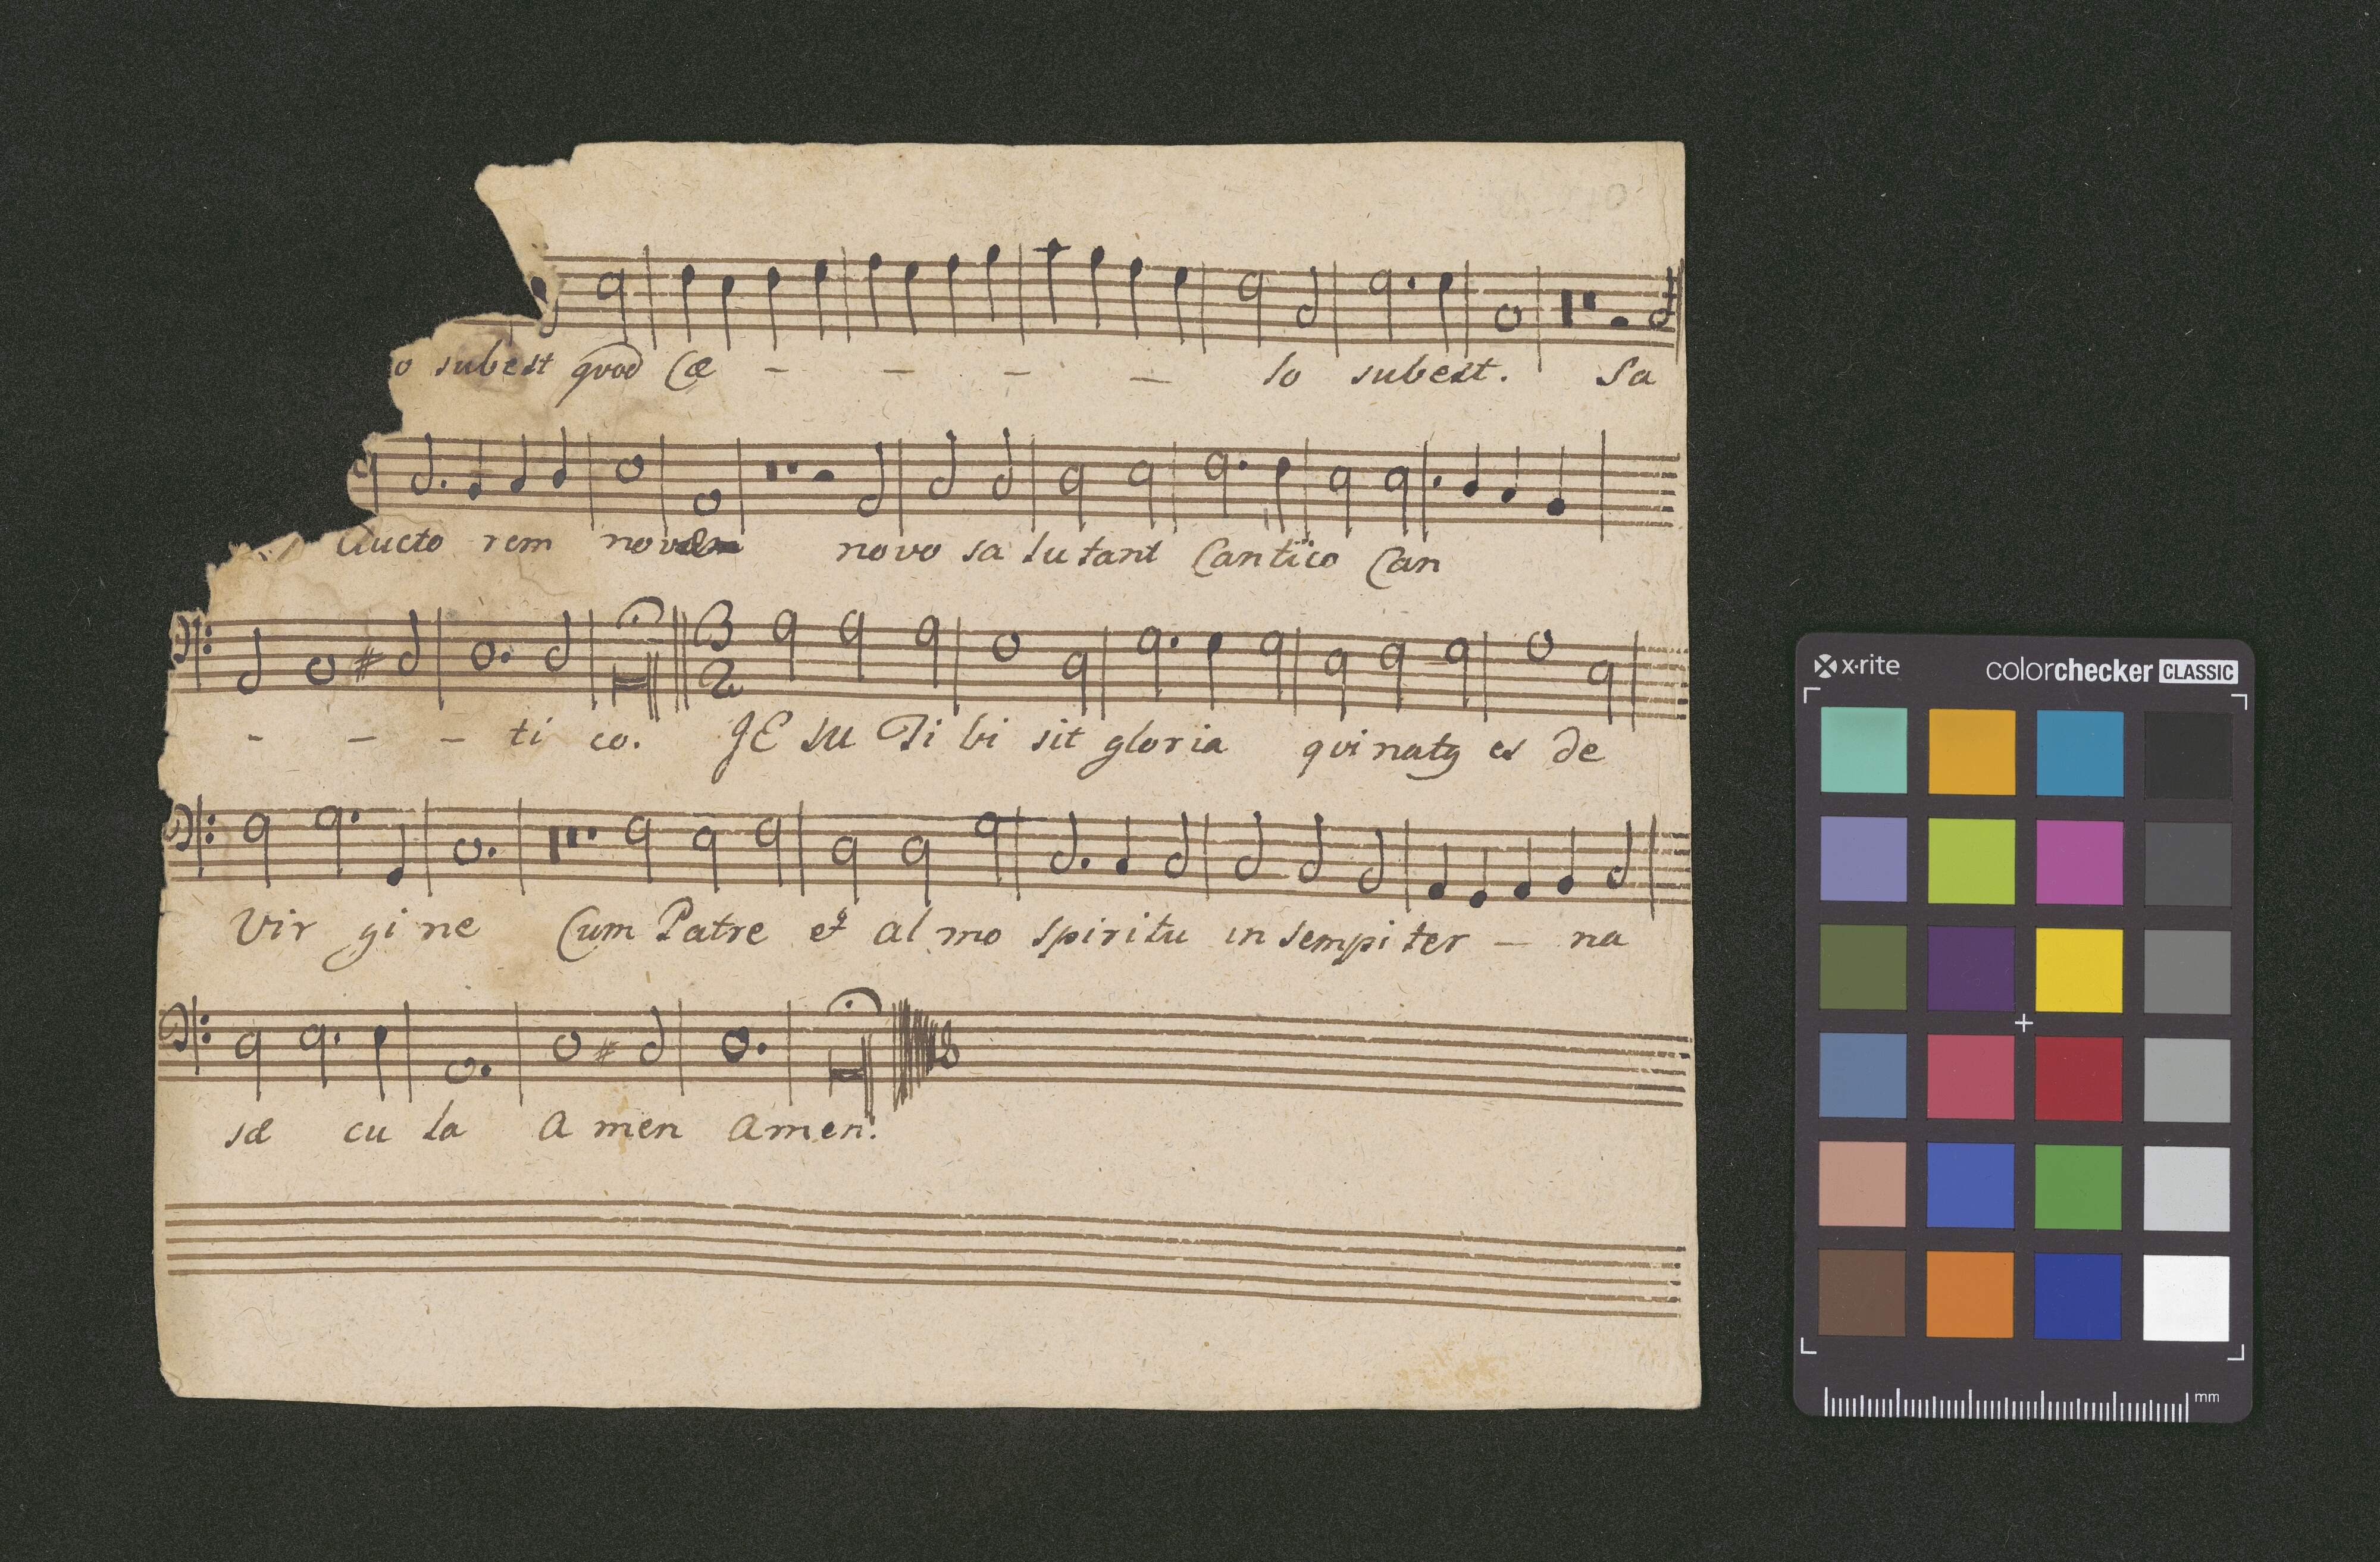 o subest quod Cæ - - - - lo subest. Sa
Aucto rem novo novo sa lu tant Cantico Can
- - - ti co. JE su Ti bi sit gloria qui natq es de
Vir gi ne Cum Patre et al mo spiritu in sempi ter - na
sæ cu la A men Amen.
x·rite colorchecker CLASSIC
mm